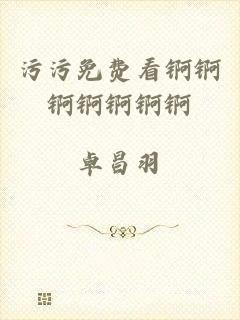 污污免费看锕锕
锕锕锕锕锕
卓昌羽